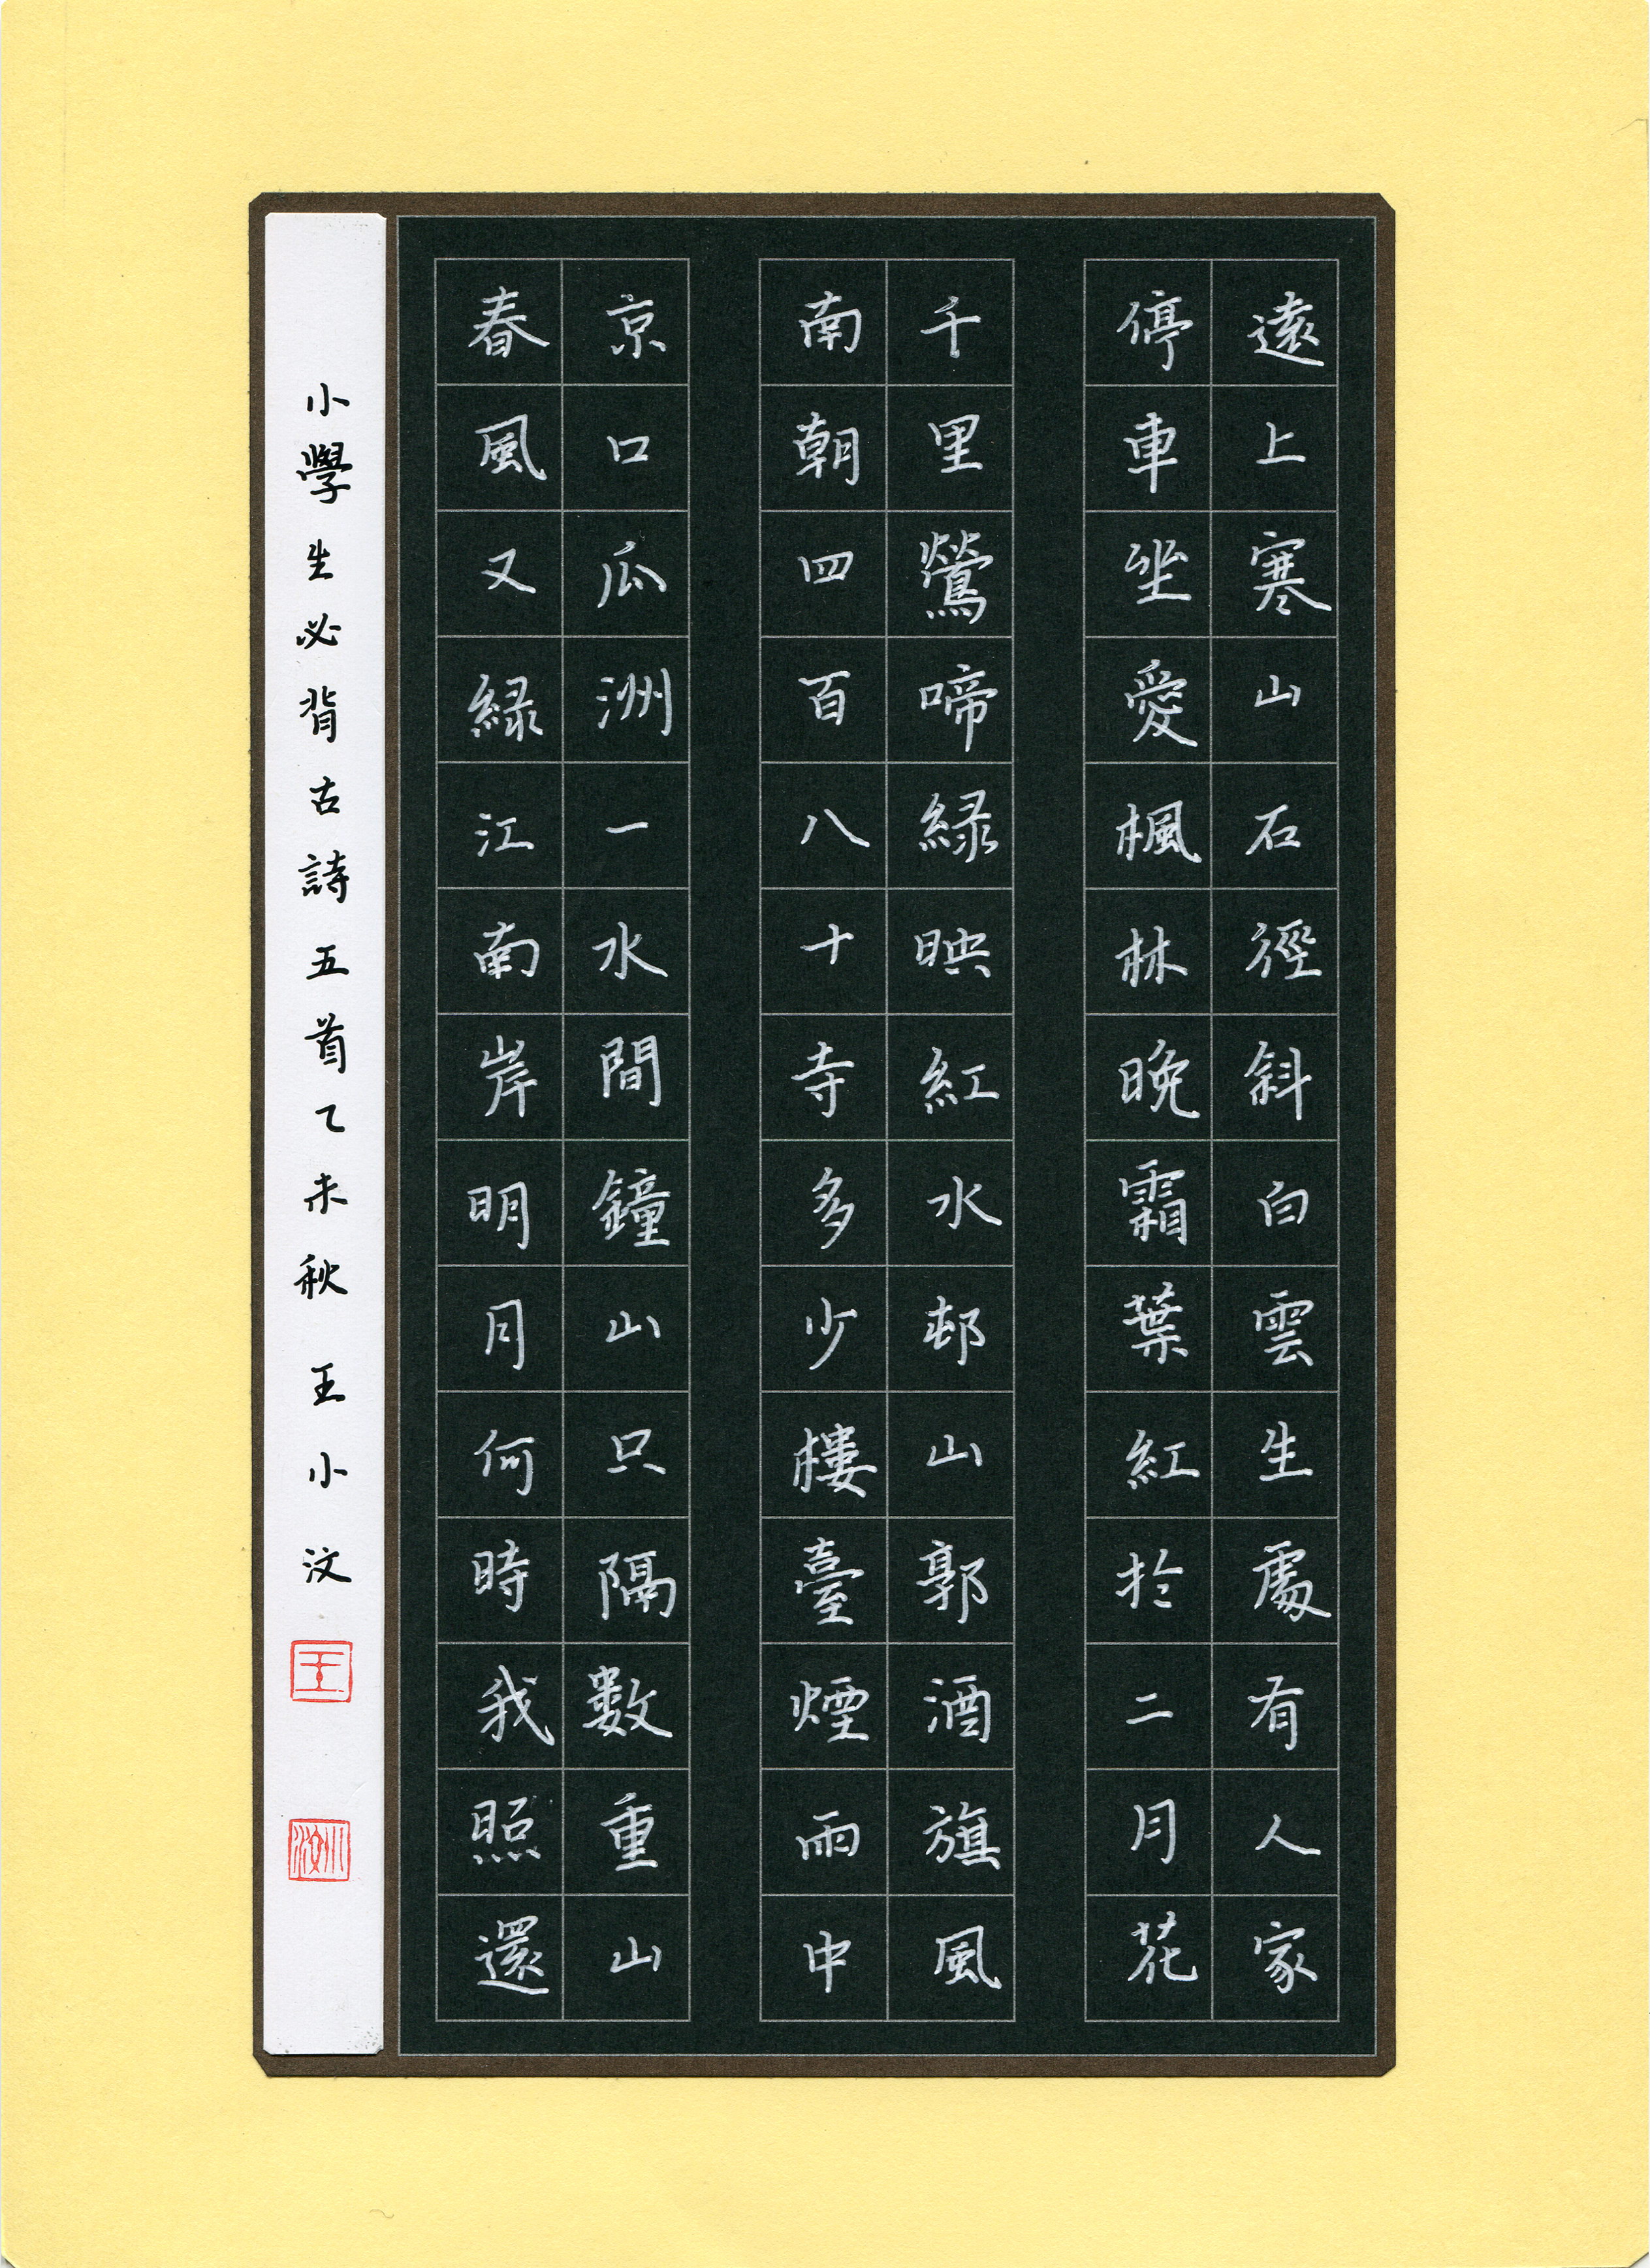 遠上寒山石徑斜白雲生處有人家
停車坐愛楓林晚霜葉紅於二月花
千里鶯啼緑映紅水邨山郭酒旗風
南朝四百八十寺多少樓臺煙雨中
京口瓜洲一水間鐘山只隔數重山
春風又緑江南岸明月何時我照還
小學生必背古詩五首乙未秋 王小汶
王
小汶